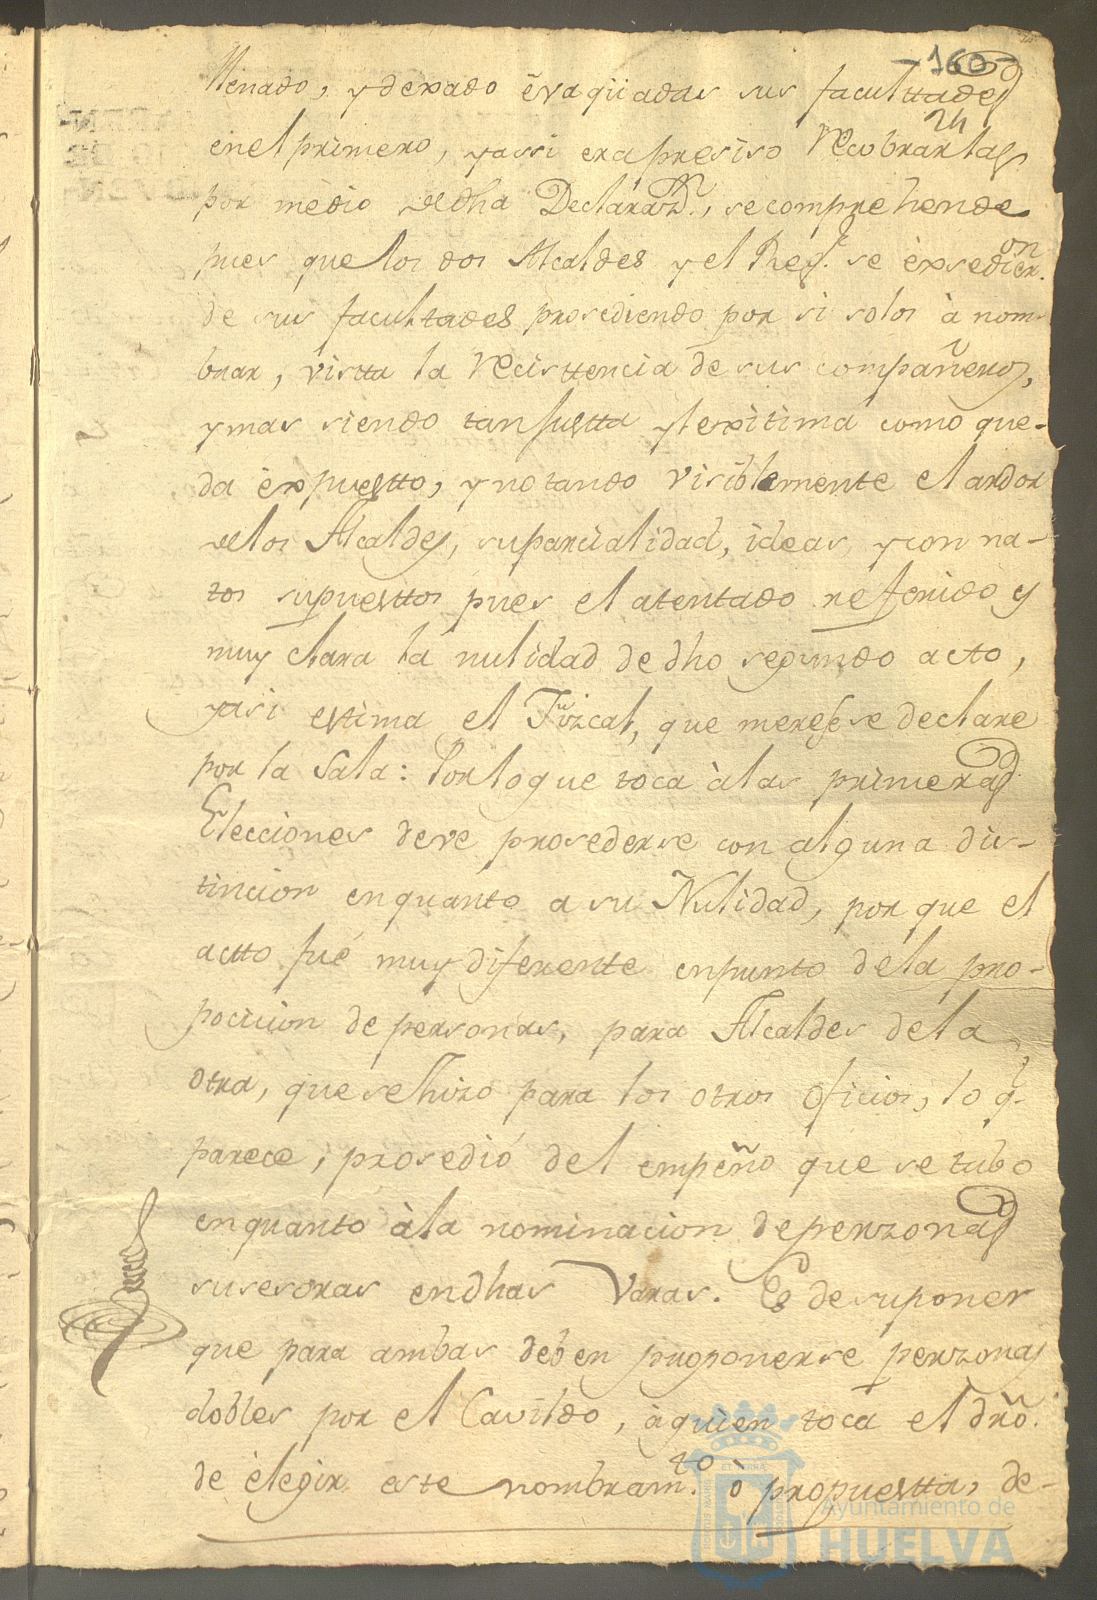 -160-
24
llenado, y dexado evaqüadas sus facultades
en el primero, y assi era presiso Recobrarlas
por medio de dha Declarazn., se comprehende
pues que los dos Alcaldes y el Regr. se exsedieron.
de sus facultades prosediendo por si solos à nom-
brar, vistta la Recisttencia de sus compañeros,
y mas siendo tan justta y lexitima como que-
da expuestto, y notando visiblemente el ardor
de los Alcaldes, su parcialidad, ideas, y con na-
tos supuesttos pues el atentado referido y
muy clara la nulidad de dho segundo acto,
y asi estima el Fiscal, que merese se declare
por la Sala: Por lo que toca à las primeras
Elecciones deve prosederse con alguna dis-
tincion en quanto a su Nulidad, por que el
actto fué muy diferente en punto de la pro-
pocicion de personas, para Alcaldes de la
otra, que se hizo para los otros oficios, lo q.e
parece, prosedió del empeño que se tubo
en quanto à la nominacion de perzonas
susesoras en dhas Varas. Es de suponer
que para ambas deben proponerse perzonas
dobles por el Cavildo, à quien toca el dro.
de elegir este nombram.to ò propuestta, de-
Ayuntamiento de
HUELVA